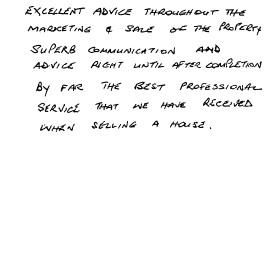 EXCELLENT ADVICE THROUGHOUT THE
MARKETING & SALE OF THE PROPERTY
SUPERB COMMUNICATION AND
ADVICE RIGHT UNTIL AFTER COMPLETION
BY FAR THE BEST PROFESSIONAL
SERVICE THAT WE HAVE RECEIVED
WHEN SELLING A HOUSE.